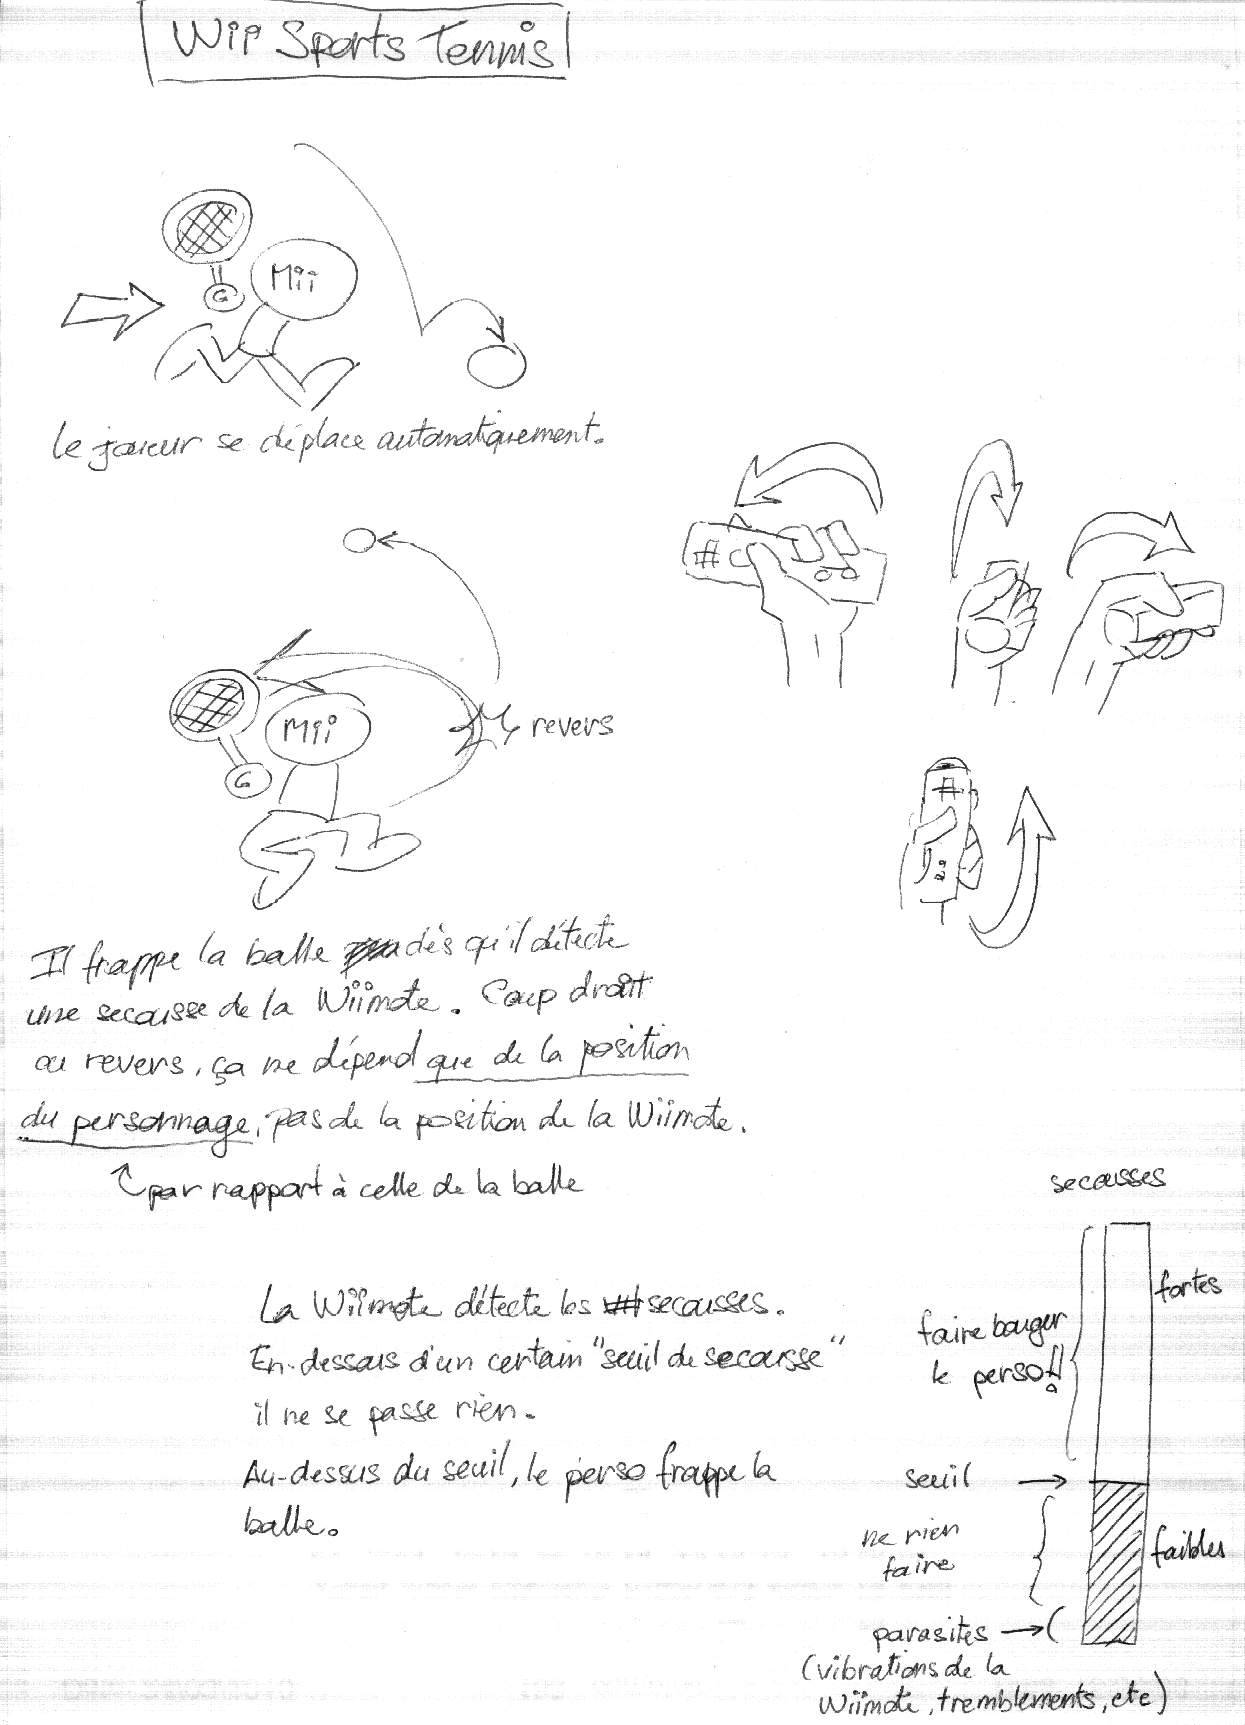 Wii Sports Tennis
Mii
G
Le joueur se déplace automatiquement.
#
Mii
G
revers
#
Il frappe la balle dès qu'il détecte
une secousse de la Wiimote. Coup droit
ou revers, ça ne dépend que de la position
du personnage, pas de la position de la Wiimote.
par rapport à celle de la balle
La Wiimote détecte les secousses.
En-dessous d'un certain "seuil de secousse"
il ne se passe rien.
Au-dessus du seuil, le perso frappe la
balle.
secousses
fortes
faire bouger
le perso!!
seuil
ne rien
faire
faibles
parasites
(vibrations de la
Wiimote, tremblements, etc)